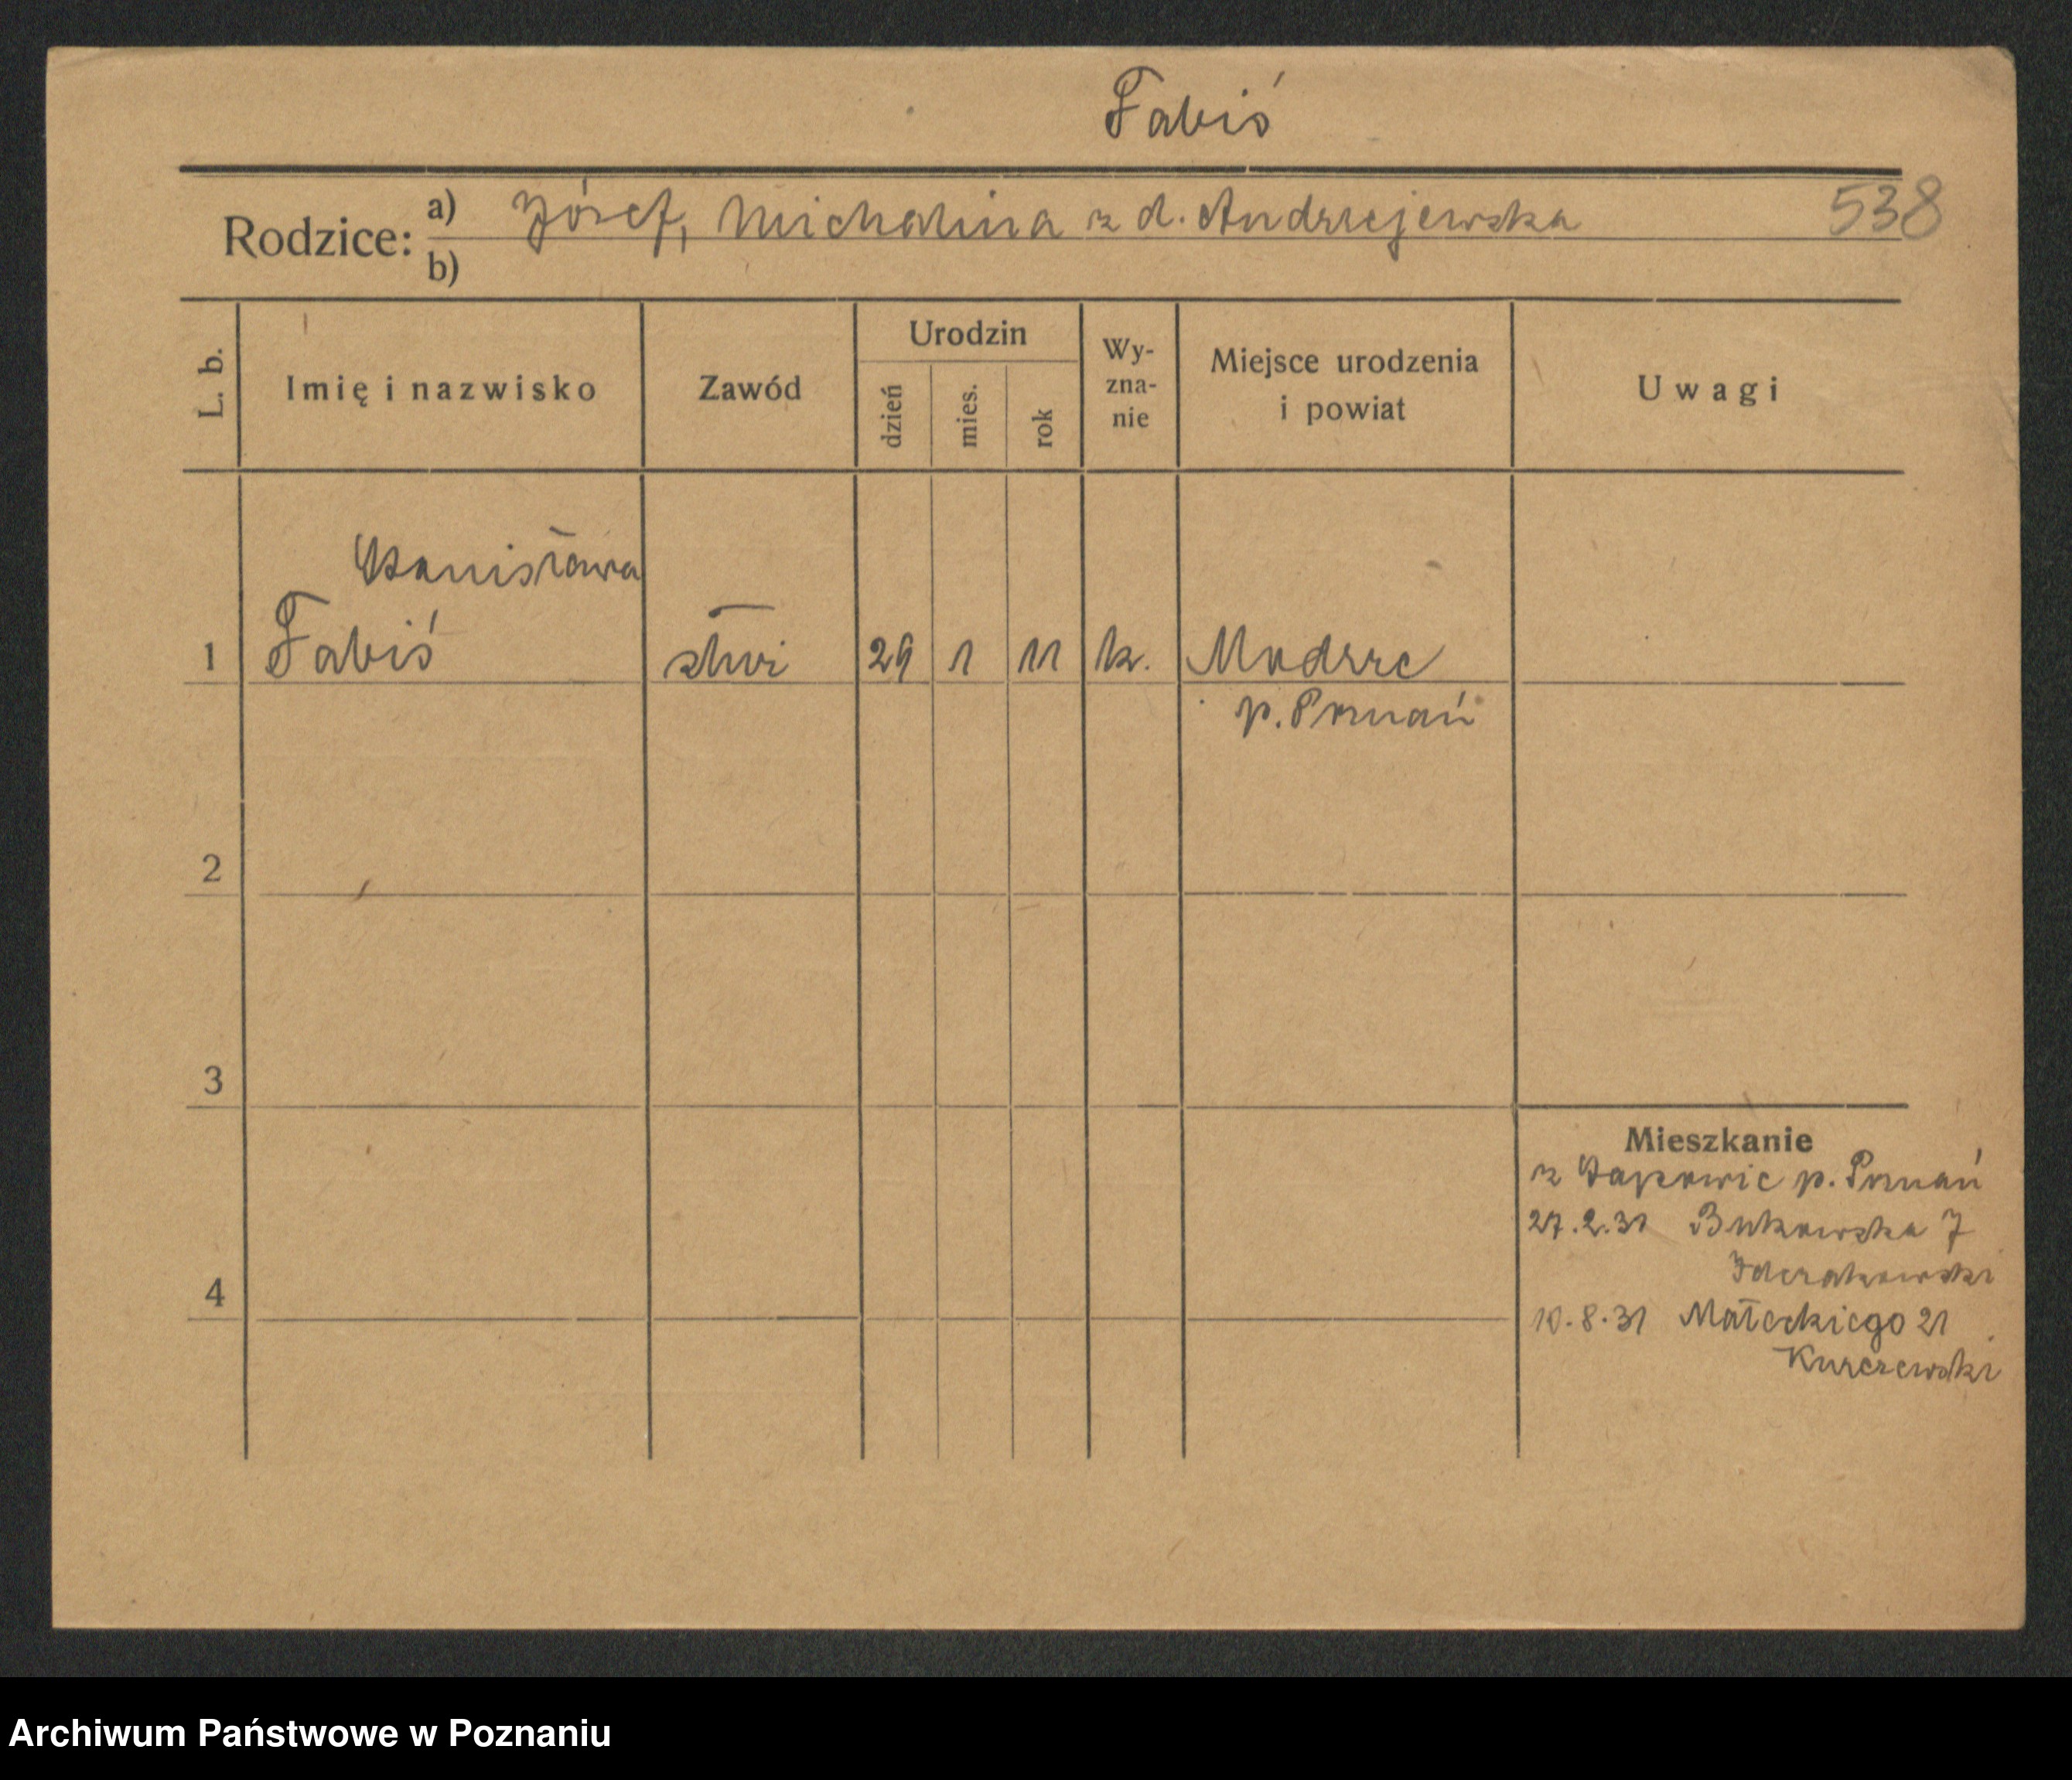 Fabiś
Rodzice: a) Józef, Michalina z d. Andrzejewska 538
b)
L. b. Imię i nazwisko Zawód Urodzin dzień mies. rok Wy-zna-nie Miejsce urodzenia i powiat Uwagi
Stanisława
1 Fabiś 29 1 11 k. Modrze
p. Poznań
2
3
Mieszkanie
z p. Poznań
27.2.31 Bukowska 7
4
10.8.31 Małeckiego 21
Kurczewski
Archiwum Państwowe w Poznaniu